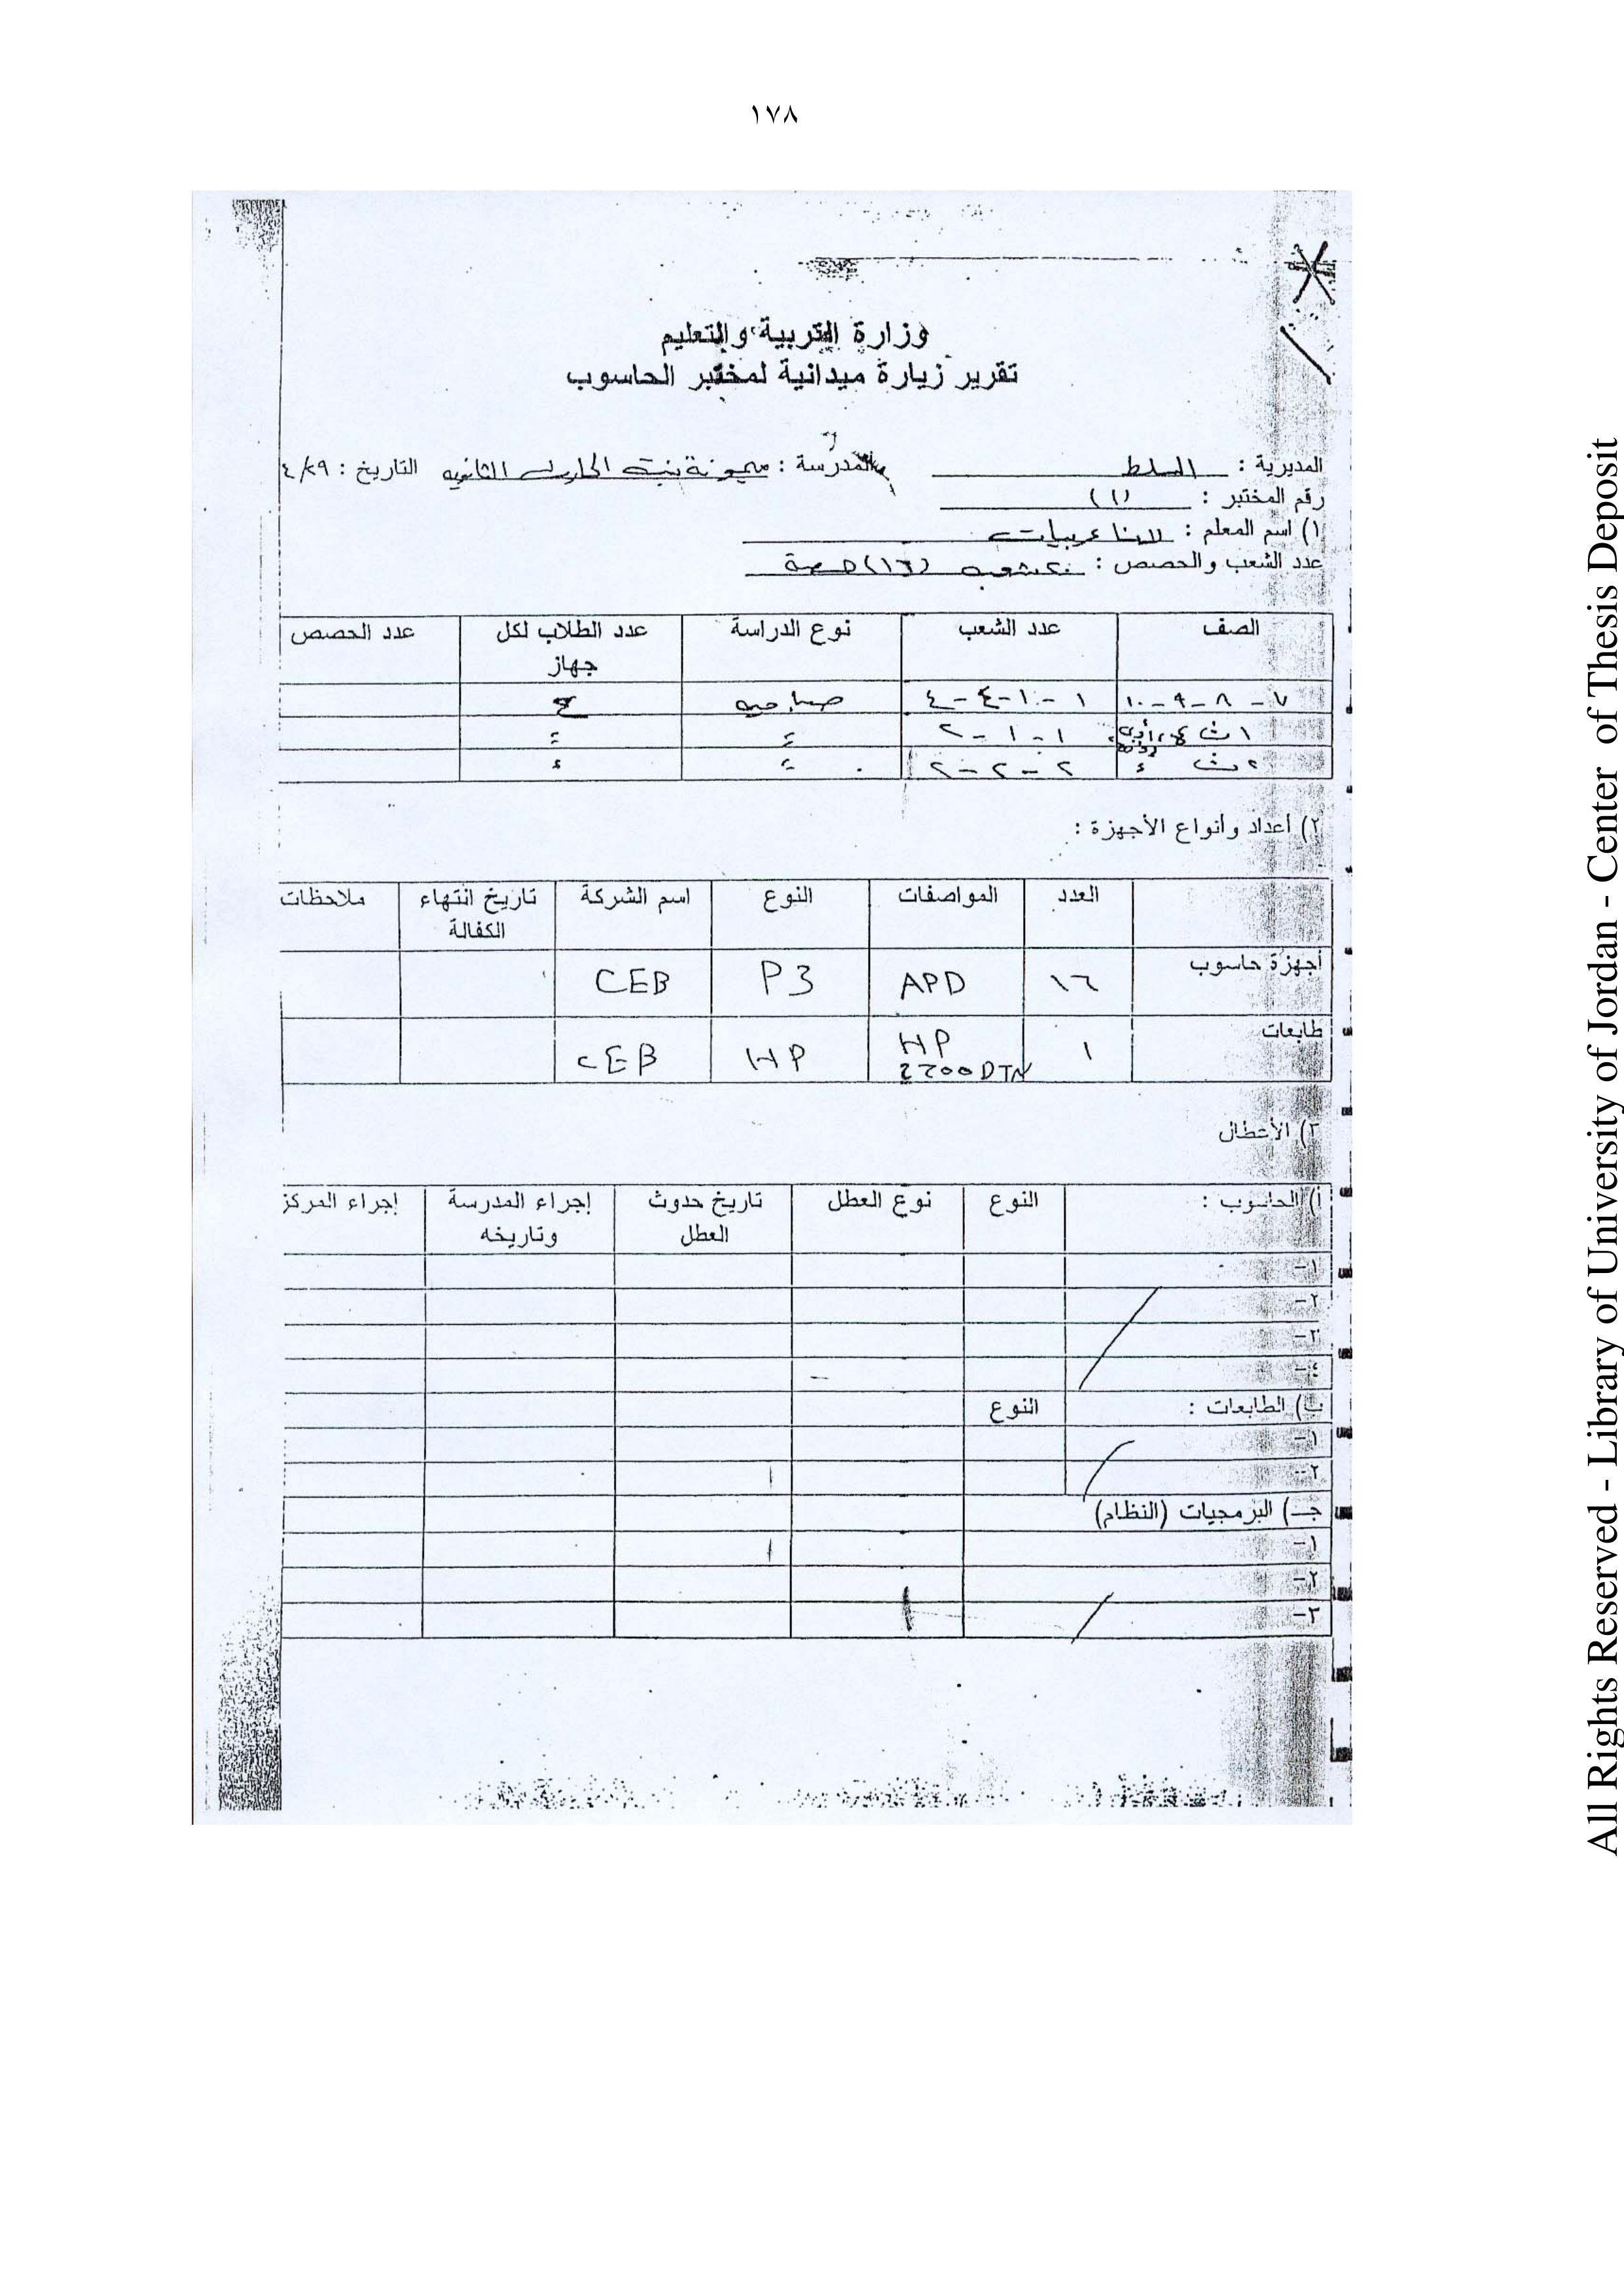 ١٧٨
وزارة التربية والتعليم
تقرير زيارة ميدانية لمختبر الحاسوب
المديرية : السلط المدرسة : ميمونة بنت الحارث الثانويه التاريخ : ٤/٢٩
رقم المختبر : (١)
١) اسم المعلم : عربيات
عدد الشعب والحصص : شعبه (١٦) حصة
الصف عدد الشعب نوع الدراسة عدد الطلاب لكل جهاز عدد الحصص
٧ - ٨ - ٩ - ١٠ ١ - ١ - ٤ - ٤ صباحيه
١ ث أدبي ١ - ١ - ٢
٢ ث ٢ - ٢ - ٢
٢) أعداد وأنواع الأجهزة :
العدد المواصفات النوع اسم الشركة تاريخ انتهاء الكفالة ملاحظات
أجهزة حاسوب ١٦ APD P3 CEB
طابعات ١ HP DTN HP CEB
٣) الأعطال
أ) الحاسوب : النوع نوع العطل تاريخ حدوث العطل إجراء المدرسة وتاريخه إجراء المركز
١-
٢-
٣-
٤-
ب) الطابعات : النوع
١-
٢-
جـ) البرمجيات (النظام)
١-
٢-
٣-
All Rights Reserved - Library of University of Jordan - Center of Thesis Deposit